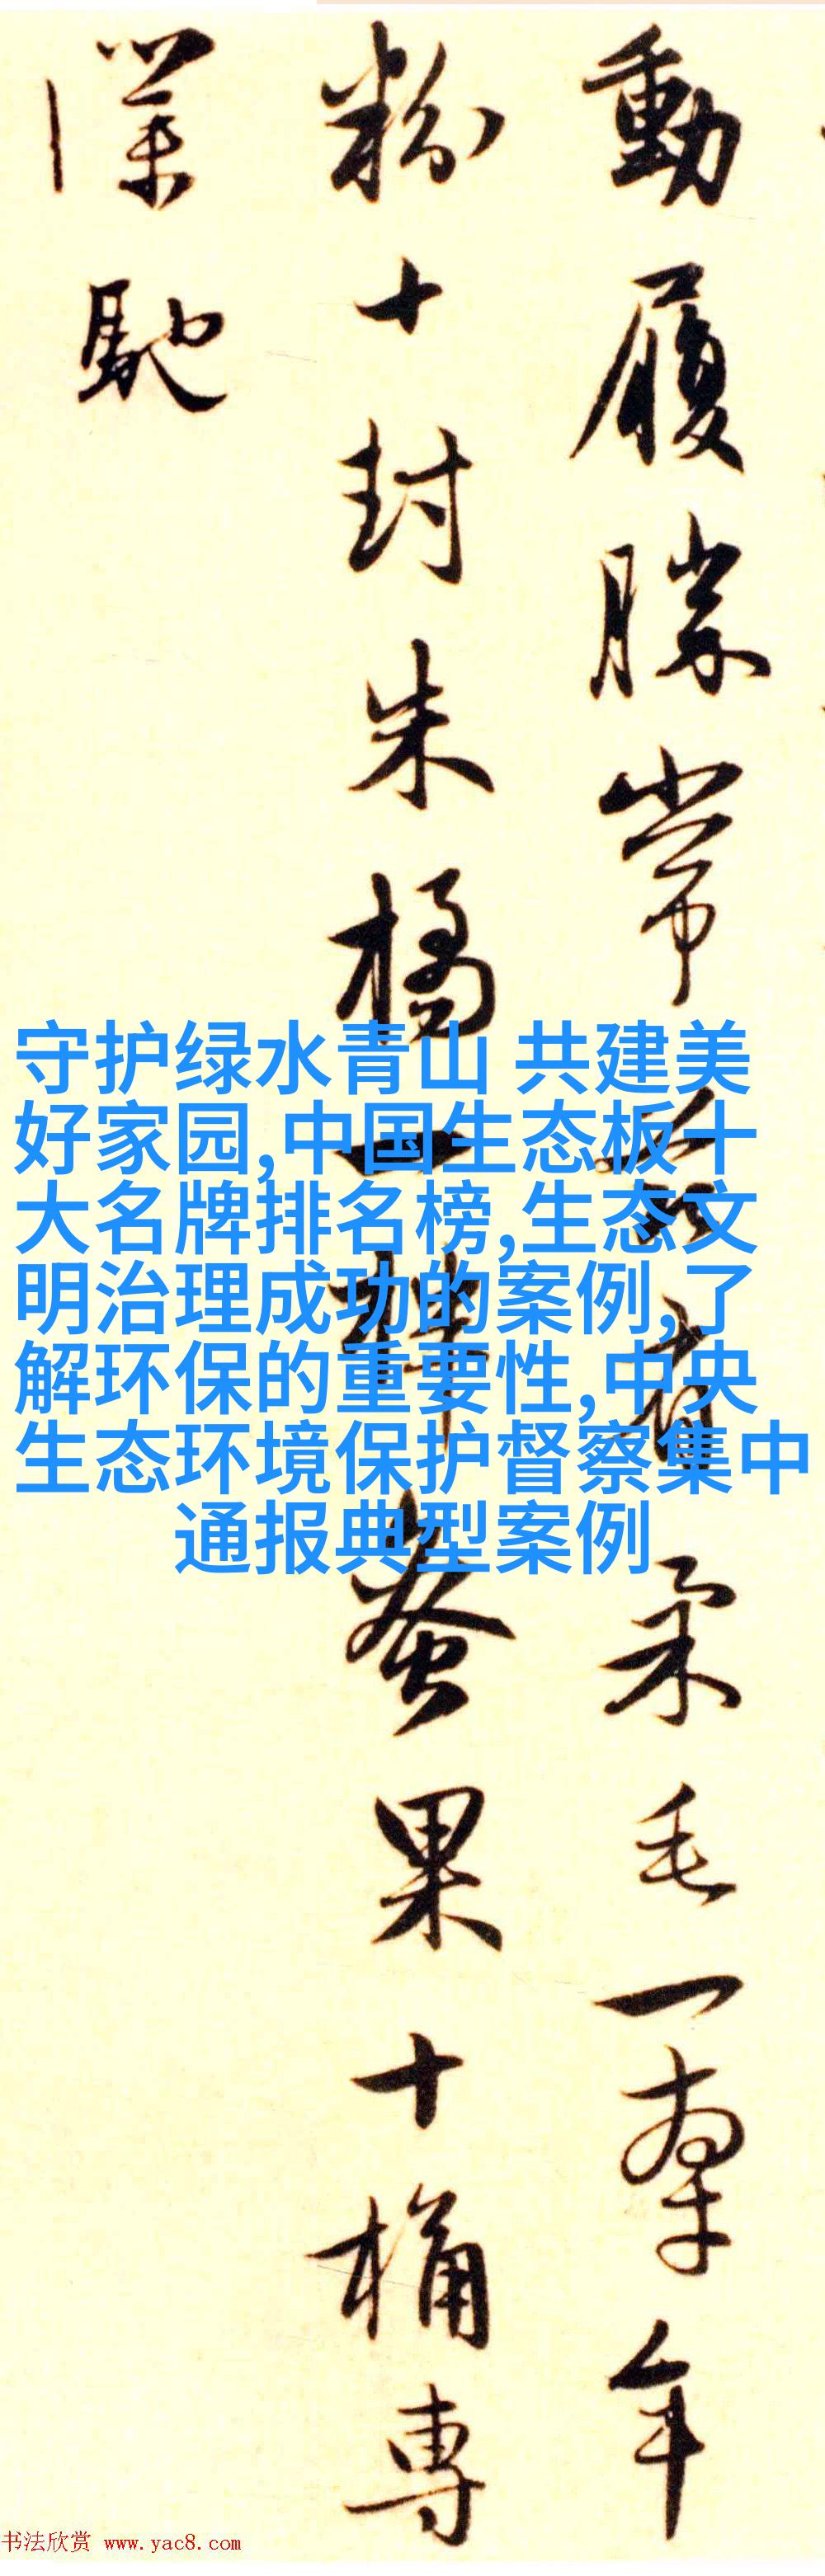 動履勝常有柔毛一羣年
粉十封朱橘一蚕果十桶專
僕馳
守护绿水青山 共建美
好家园,中国生态板十
大名牌排名榜,生态文
明治理成功的案例,了
解环保的重要性,中央
生态环境保护督察集中
通报典型案例
书法欣赏 www.yac8.com